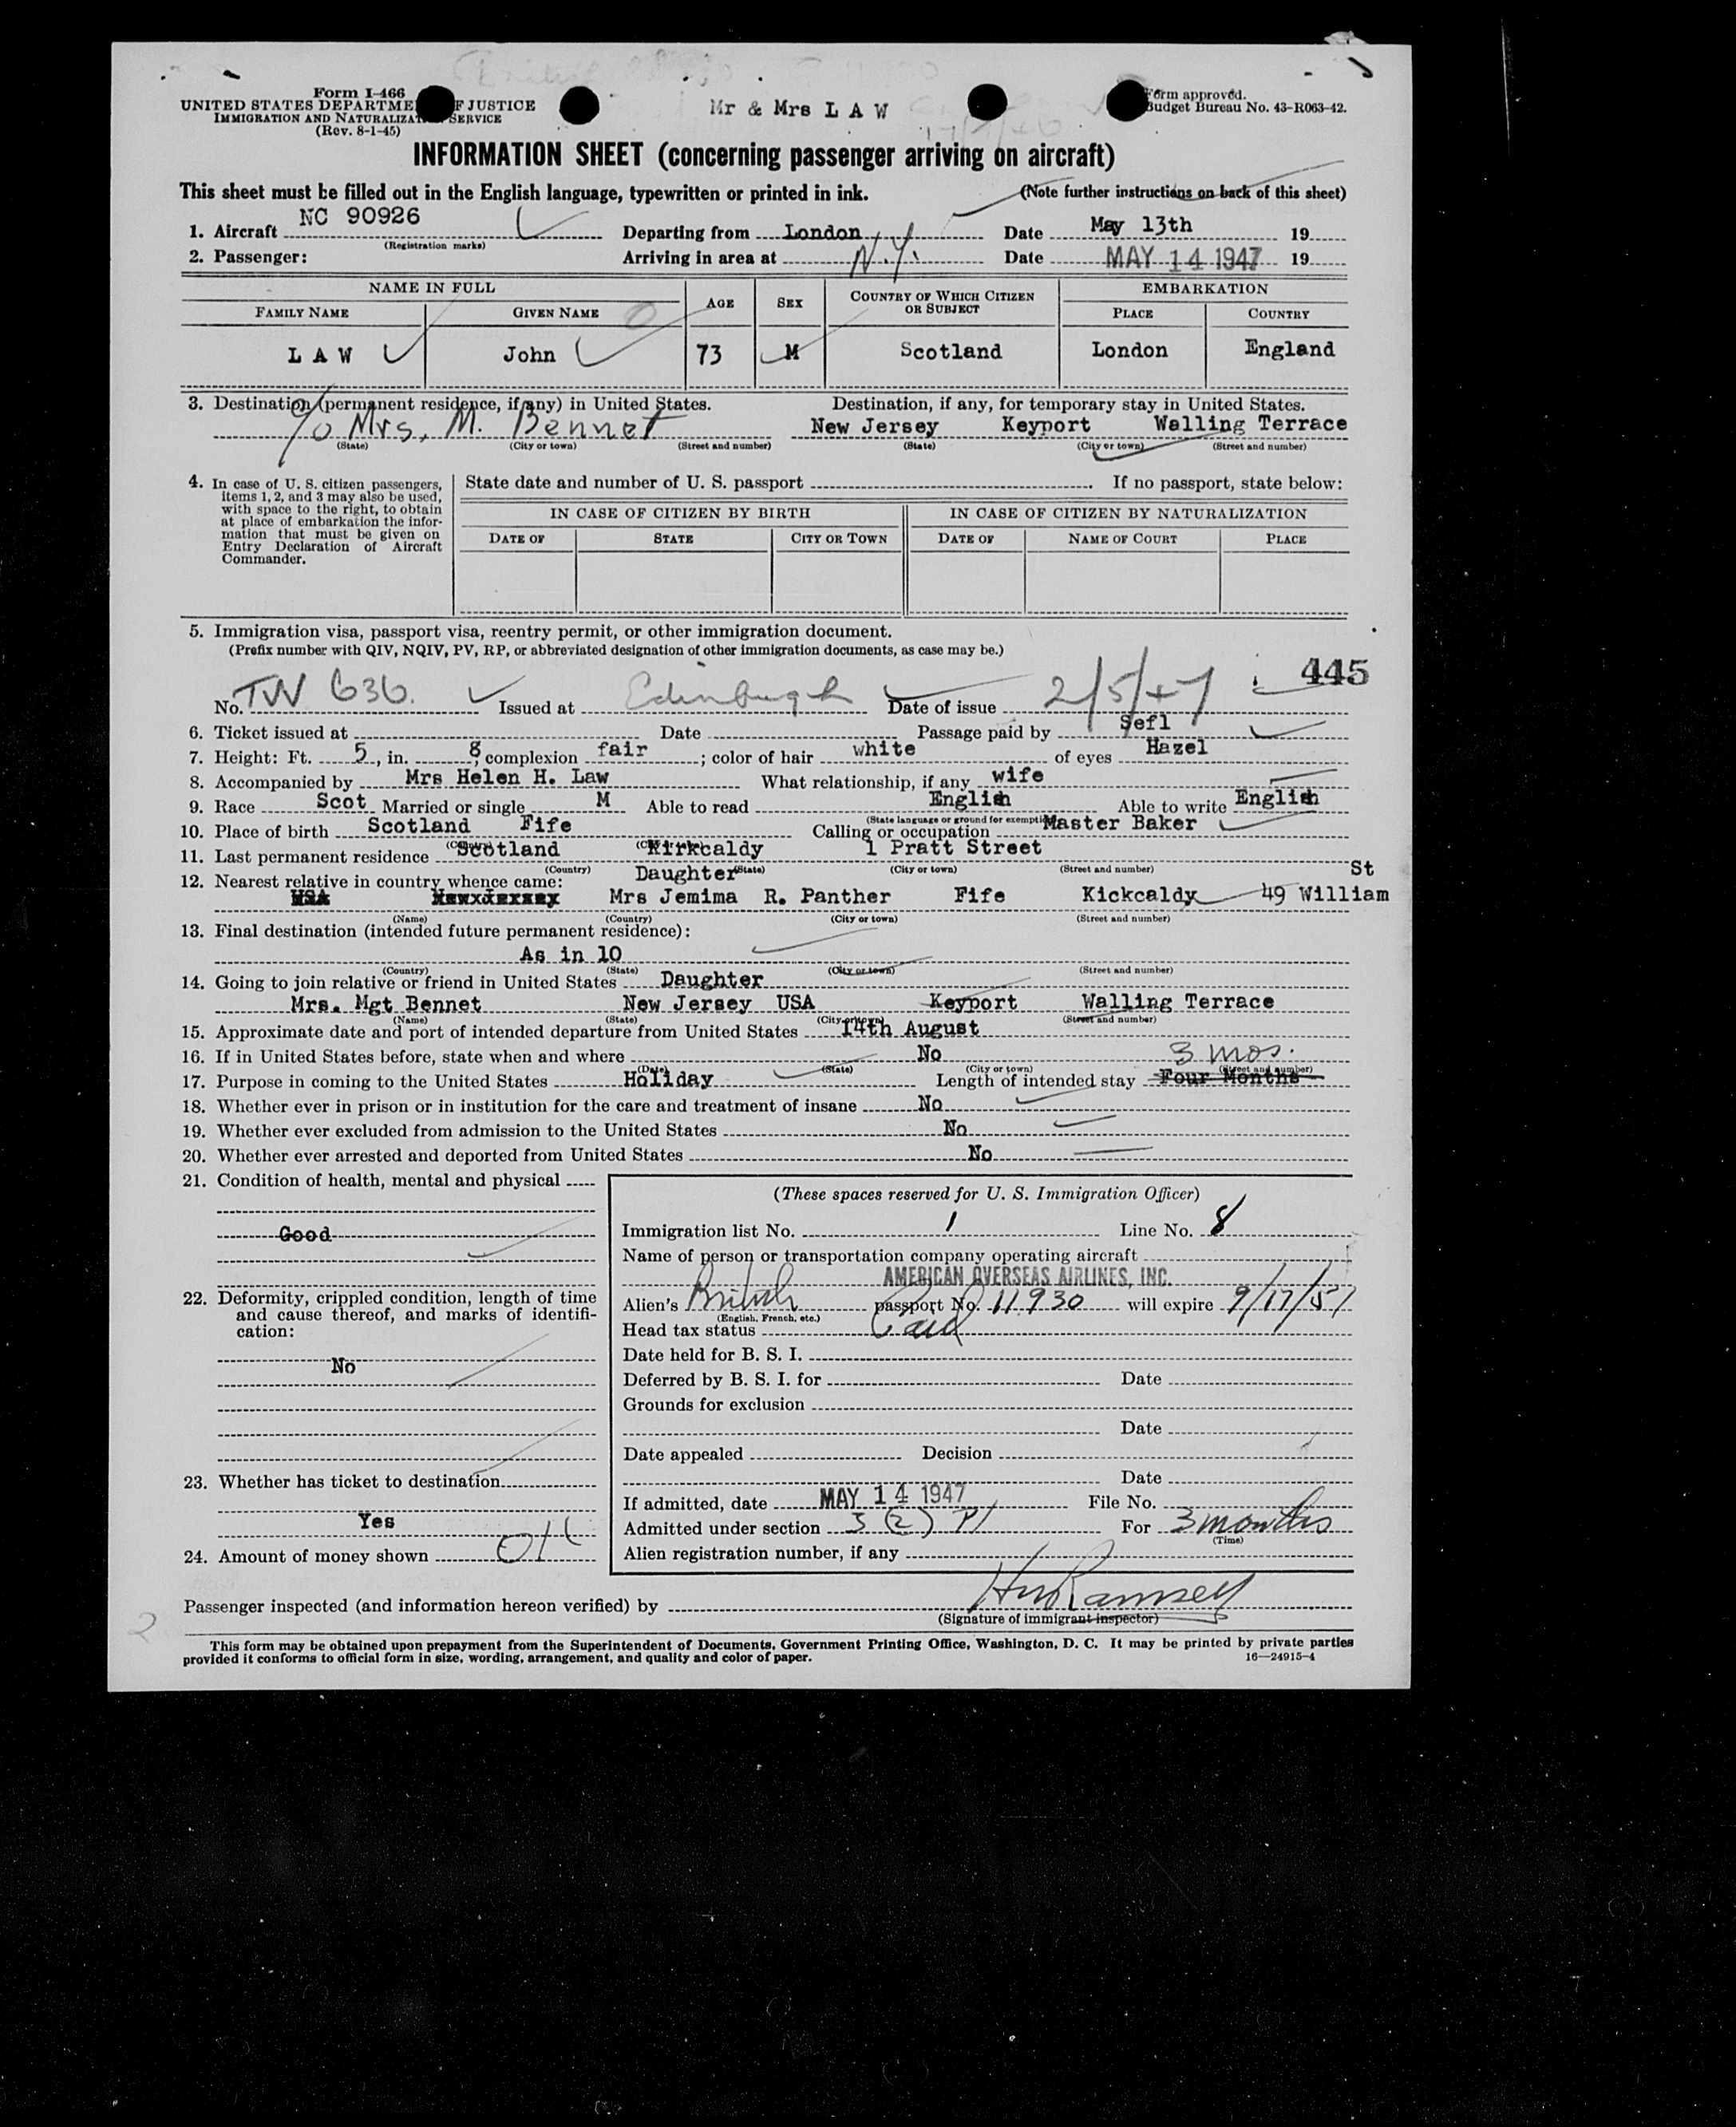 Form I-466
UNITED STATES DEPARTME F JUSTICE
IMMIGRATION AND NATURALIZAT SERVICE
(Rev. 8-1-45)
Mr & Mrs L A W
Form approved.
Budget Bureau No. 43-R063-42.
INFORMATION SHEET (concerning passenger arriving on aircraft)
This sheet must be filled out in the English language, typewritten or printed in ink. (Note further instructions on back of this sheet)
1. Aircraft NC 90926 Departing from London Date May 13th 19
(Registration marks)
2. Passenger: Arriving in area at N.Y. Date MAY 14 1947 19
NAME IN FULL AGE SEX COUNTRY OF WHICH CITIZEN OR SUBJECT EMBARKATION
FAMILY NAME GIVEN NAME PLACE COUNTRY
L A W John 73 M Scotland London England
3. Destination (permanent residence, if any) in United States. Destination, if any, for temporary stay in United States.
c/o Mrs. M. Bennet New Jersey Keyport Walling Terrace
(State) (City or town) (Street and number) (State) (City or town) (Street and number)
4. In case of U. S. citizen passengers,
items 1, 2, and 3 may also be used,
with space to the right, to obtain
at place of embarkation the infor-
mation that must be given on
Entry Declaration of Aircraft
Commander.
State date and number of U. S. passport . If no passport, state below:
IN CASE OF CITIZEN BY BIRTH IN CASE OF CITIZEN BY NATURALIZATION
DATE OF STATE CITY OR TOWN DATE OF NAME OF COURT PLACE
5. Immigration visa, passport visa, reentry permit, or other immigration document.
(Prefix number with QIV, NQIV, PV, RP, or abbreviated designation of other immigration documents, as case may be.)
445
No. TW 636. Issued at Edinburgh Date of issue 2/5/47
6. Ticket issued at Date Passage paid by Sefl
7. Height: Ft. 5, in. 8; complexion fair; color of hair white of eyes Hazel
8. Accompanied by Mrs Helen H. Law What relationship, if any wife
9. Race Scot Married or single M Able to read English Able to write English
(State language or ground for exemption)
10. Place of birth Scotland Fife Calling or occupation Master Baker
11. Last permanent residence Scotland Kirkcaldy 1 Pratt Street
(Country) (State) (City or town) (Street and number)
12. Nearest relative in country whence came: Daughter St
USA New Jersey Mrs Jemima R. Panther Fife Kickcaldy 49 William
(Name) (Country) (City or town) (Street and number)
13. Final destination (intended future permanent residence):
As in 10
(Country) (State) (City or town) (Street and number)
14. Going to join relative or friend in United States Daughter
Mrs. Mgt Bennet New Jersey USA Keyport Walling Terrace
(Name) (State) (City or town) (Street and number)
15. Approximate date and port of intended departure from United States 14th August
16. If in United States before, state when and where No 3 mos.
(Date) (State) (City or town) (Street and number)
17. Purpose in coming to the United States Holiday Length of intended stay Four Months
18. Whether ever in prison or in institution for the care and treatment of insane No
19. Whether ever excluded from admission to the United States No
20. Whether ever arrested and deported from United States No
21. Condition of health, mental and physical
Good
22. Deformity, crippled condition, length of time
and cause thereof, and marks of identifi-
cation:
No
23. Whether has ticket to destination
Yes
24. Amount of money shown OK
(These spaces reserved for U. S. Immigration Officer)
Immigration list No. 1 Line No. 8
Name of person or transportation company operating aircraft
AMERICAN OVERSEAS AIRLINES, INC.
Alien's British passport No. 11930 will expire 9/17/51
(English, French, etc.)
Head tax status Paid
Date held for B. S. I.
Deferred by B. S. I. for Date
Grounds for exclusion
Date
Date appealed Decision
Date
If admitted, date MAY 14 1947 File No.
Admitted under section 3 (2) P/ For 3 months
(Time)
Alien registration number, if any
Passenger inspected (and information hereon verified) by Ramsey
(Signature of immigrant inspector)
2
This form may be obtained upon prepayment from the Superintendent of Documents, Government Printing Office, Washington, D. C. It may be printed by private parties
provided it conforms to official form in size, wording, arrangement, and quality and color of paper. 16—24915-4